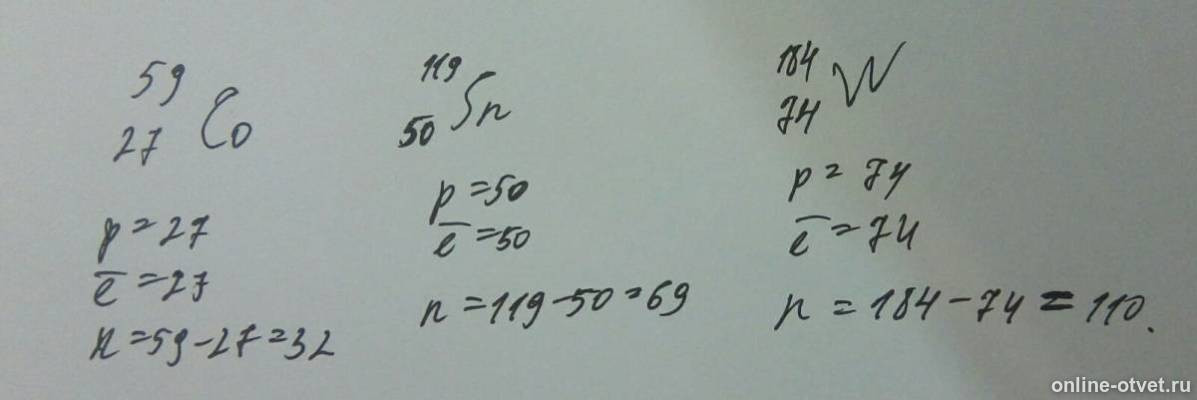 59
27 Co
p = 27
ē = 27
n = 59 - 27 = 32
119
50 Sn
p = 50
ē = 50
n = 119 - 50 = 69
184
74 W
p = 74
ē = 74
n = 184 - 74 = 110.
online-otvet.ru